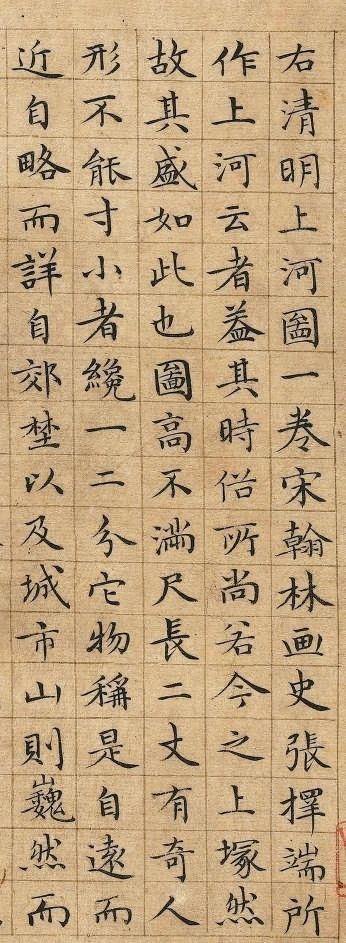 右清明上河圖一卷宋翰林画史張擇端所
作上河云者葢其時俗所尚若今之上塚然
故其盛如此也圖高不滿尺長二丈有奇人
形不能寸小者纔一二分它物稱是自遠而
近自略而詳自郊埜以及城市山則巍然而